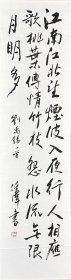 江南江北望煙波入夜行人相應
歌桃葉傳情竹枝怨水流無限
月明多
劉禹錫
書